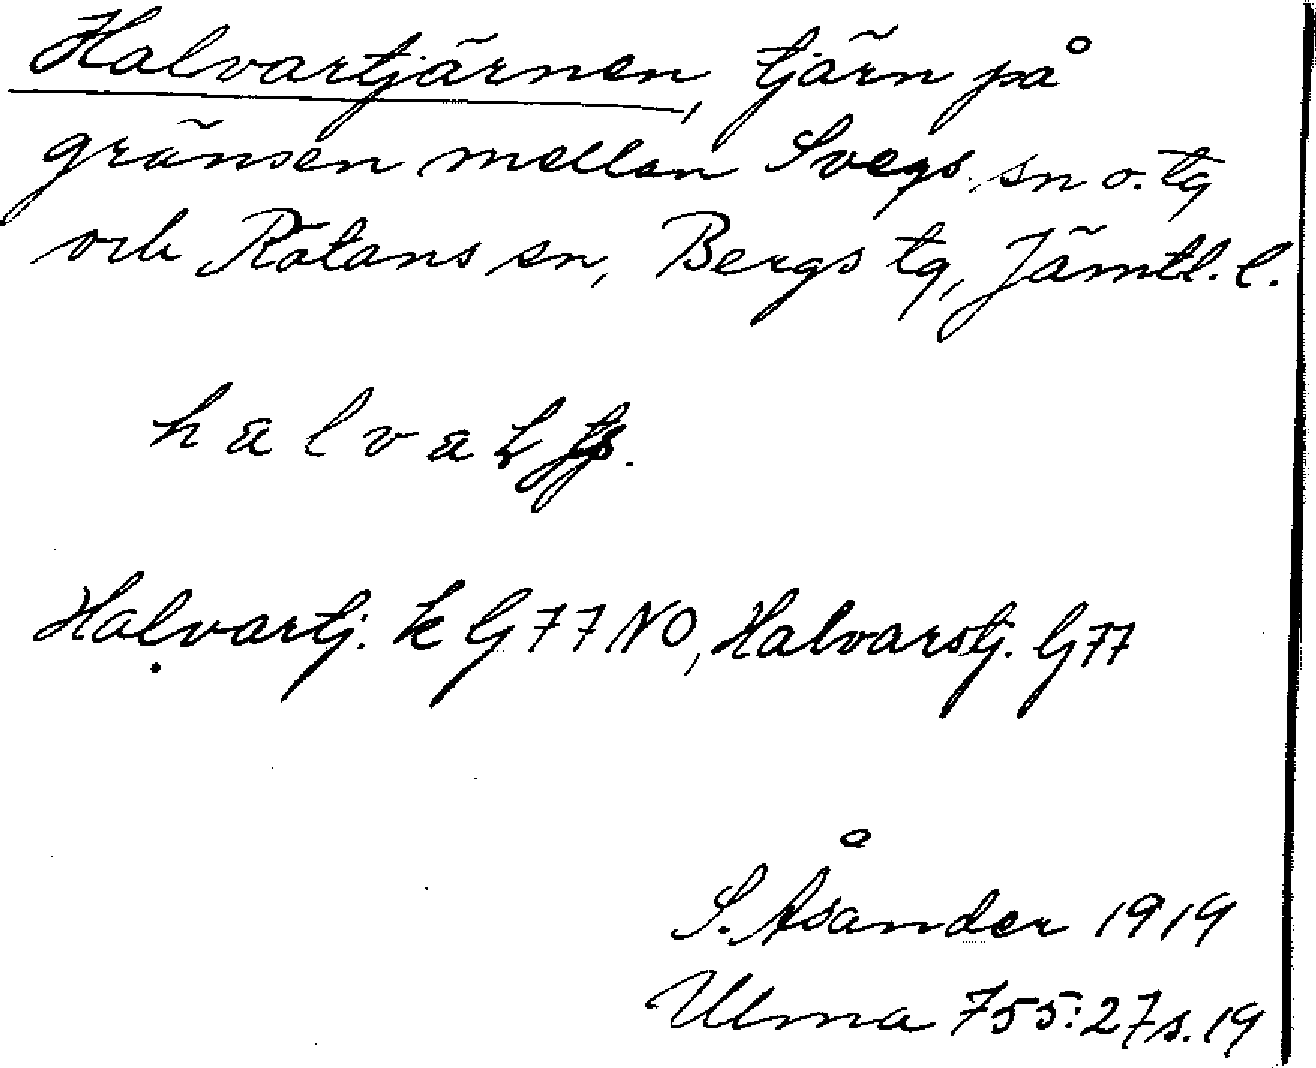 Halvartjärnen, tjärn på
gränsen mellan Svegs sn o. tg
och Rätans sn, Bergs tg, Jämtl. l.
Halvartj. k G77NO, Halvarstj. G77
S. Åsander 1919
Ulma 755:27 s. 19